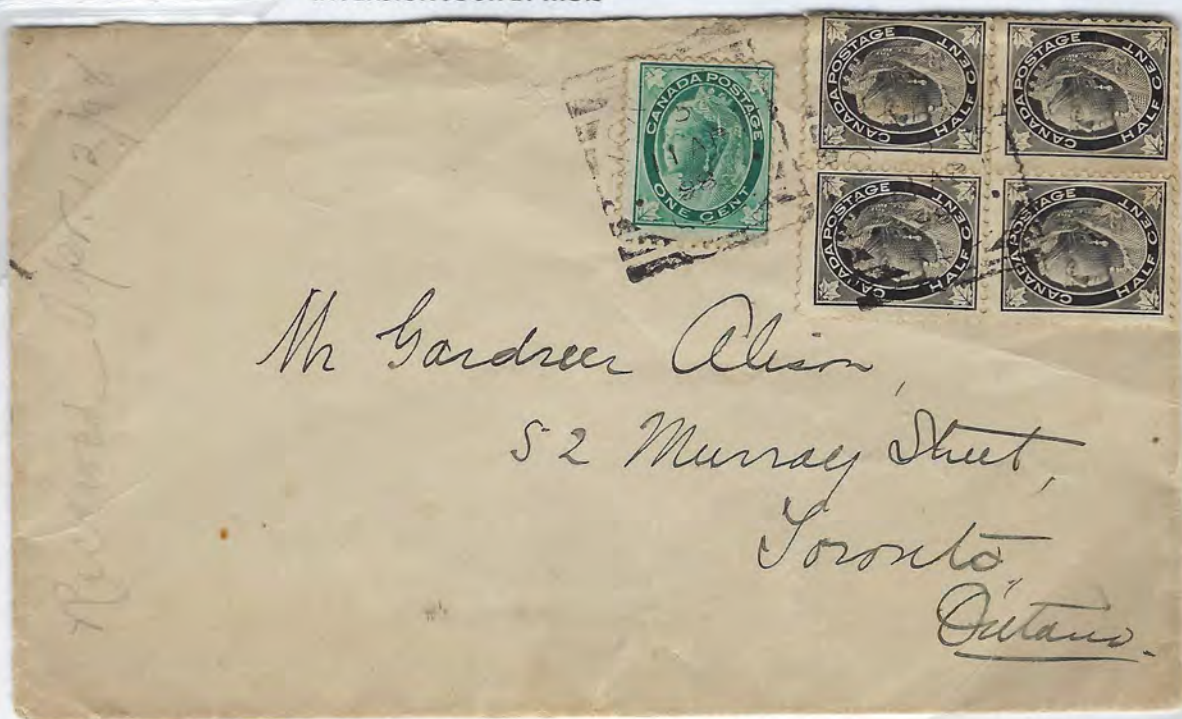 CANADA POSTAGE
ONE CENT
CANADA POSTAGE
HALF CENT
CANADA POSTAGE
HALF CENT
CANADA POSTAGE
HALF CENT
CANADA POSTAGE
HALF CENT
Mr Gardner Alison,
52 Murray Street,
Toronto,
Ontario.